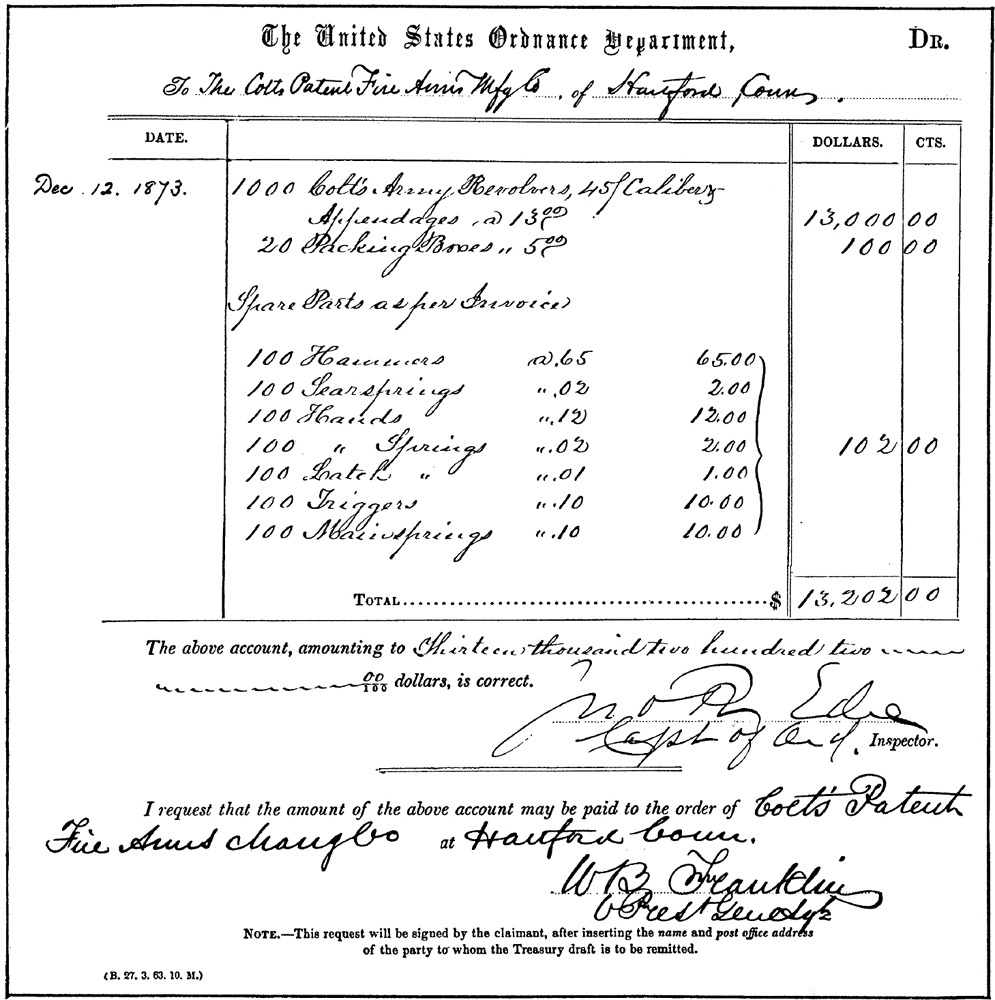 The United States Ordnance Department, DR.
To The Colts Patent Fire Arms Mfg Co. of Hartford Conn.
DATE. DOLLARS. CTS.
Dec. 12. 1873. 1000 Colt's Army Revolvers, 45/ Caliber &
Appendages a 13.00 13,000 00
20 Packing Boxes " 5.00 100 00
Spare Parts as per Invoice
100 Hammers a .65 65.00
100 Searsprings " .02 2.00
100 Hands " .12 12.00
100 " Springs " .02 2.00 102 00
100 Latch " " .01 1.00
100 Triggers " .10 10.00
100 Mainsprings " .10 10.00
TOTAL........................................$ 13,202 00
The above account, amounting to Thirteen thousand two hundred two
00/100 dollars, is correct.
Jno R Edie
Capt of Ord. Inspector.
I request that the amount of the above account may be paid to the order of Colt's Patent
Fire Arms Manfg Co at Hartford Conn.
W B Franklin
V Prest Gen Agt
NOTE.—This request will be signed by the claimant, after inserting the name and post office address
of the party to whom the Treasury draft is to be remitted.
(B. 27. 3. 63. 10. M.)